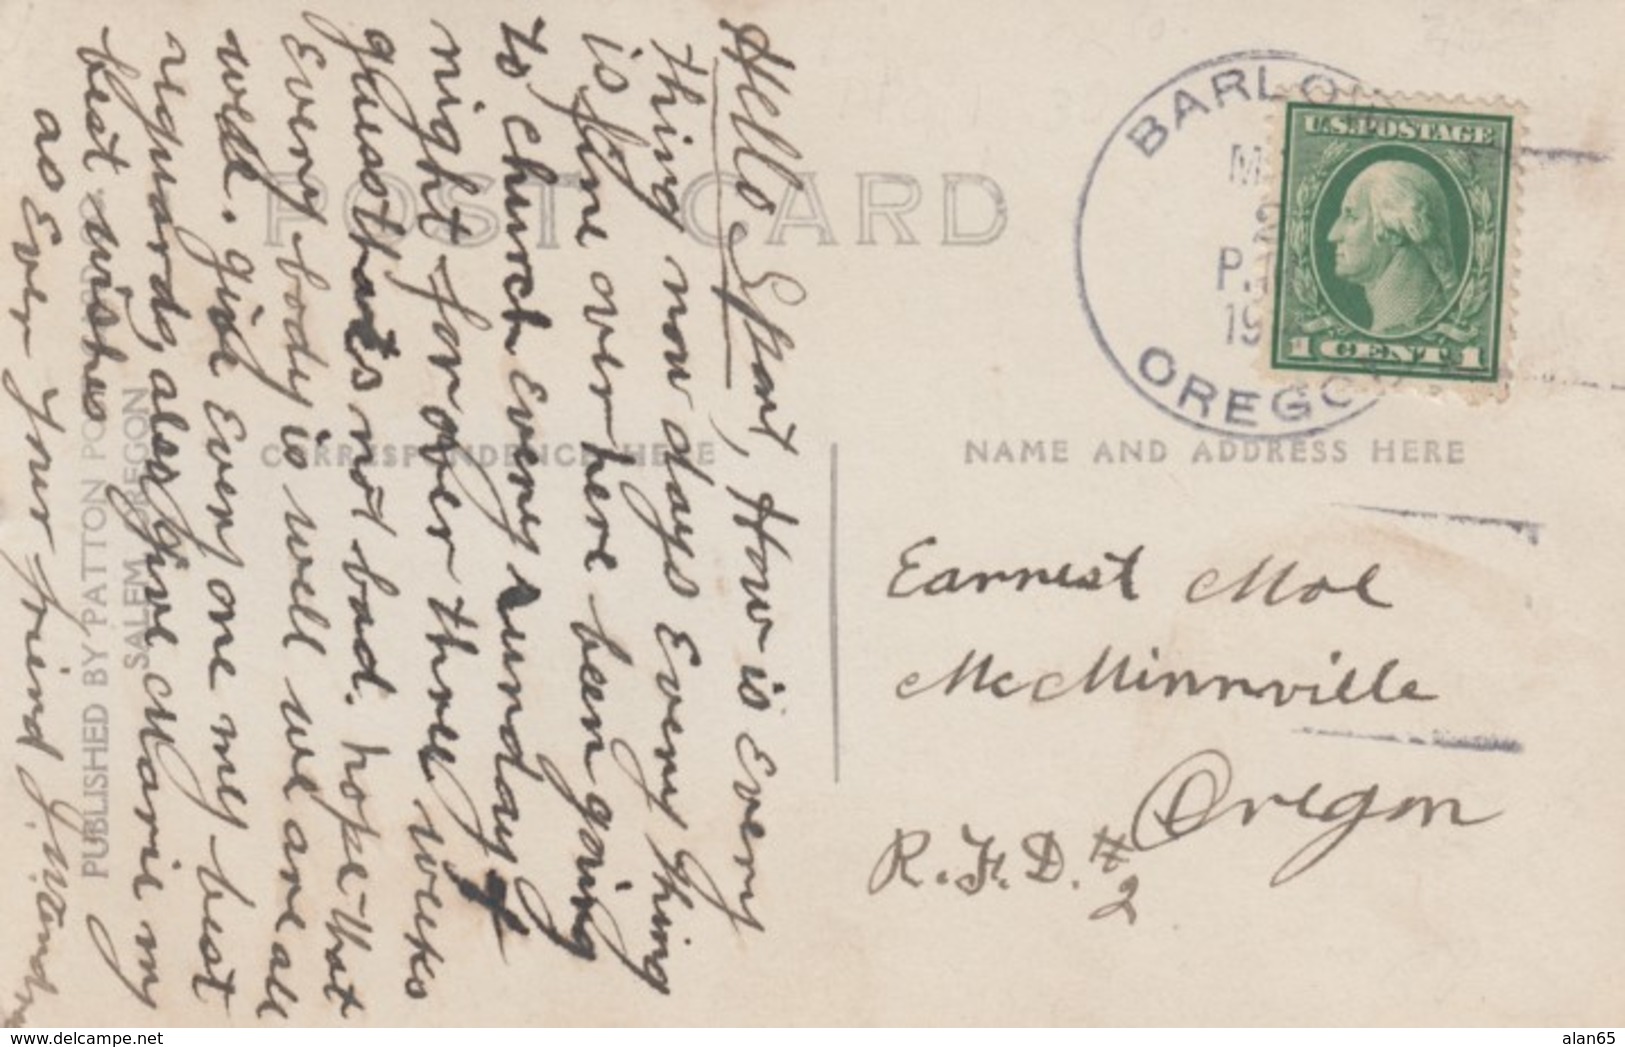 Hello Sport, How is Every
thing now days Every thing
is fine over here been going
to church Every sunday &
night for over three weeks
guess that's not bad. hope that
Every body is well we are all
well. give Every one my best
reguards, also give Marie my
best wishes
as Ever Your friend
PUBLISHED BY PATTON POST CARD
SALEM OREGON
POST CARD
CORRESPONDENCE HERE
NAME AND ADDRESS HERE
BARLOW
P.
19
OREGON
U.S. POSTAGE
1 CENT 1
Earnest Moe
McMinnville
Oregon
R.F.D. #2
alan65